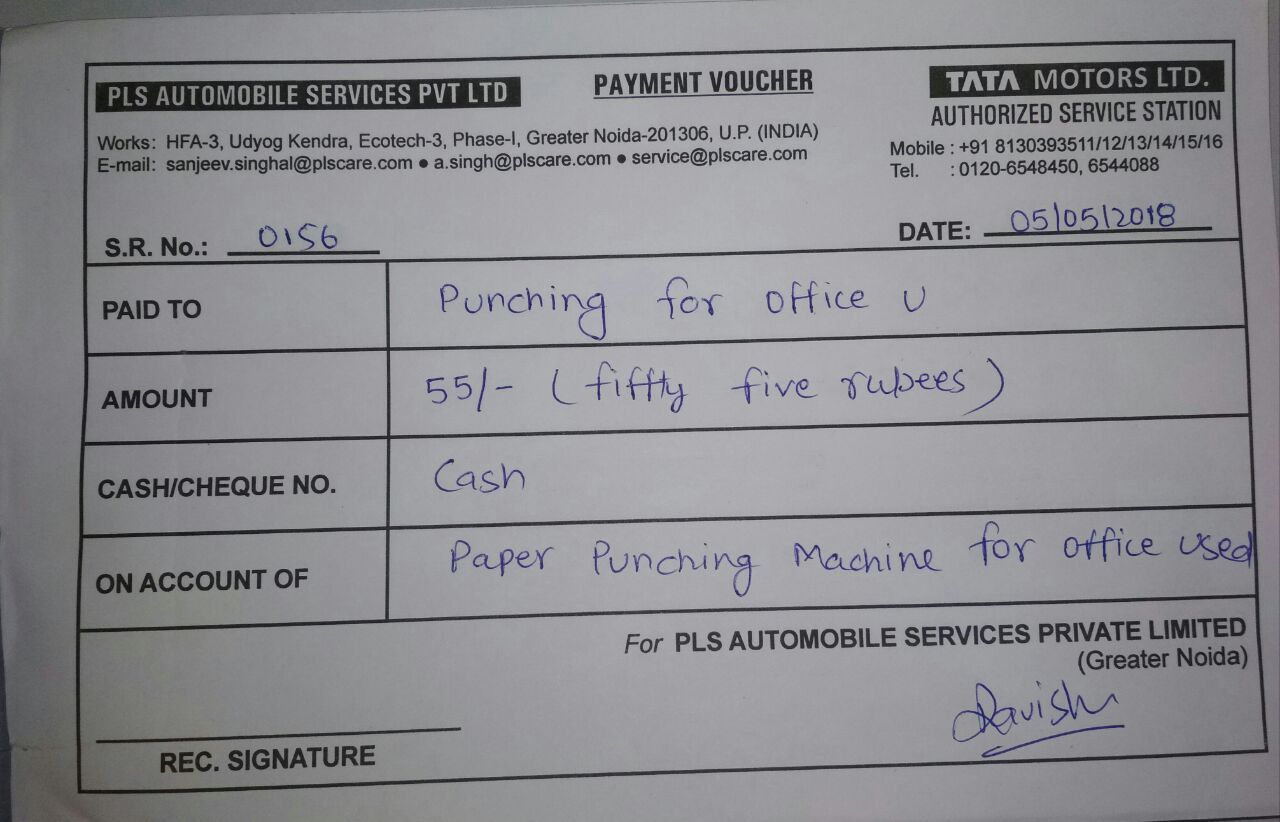 PLS AUTOMOBILE SERVICES PVT LTD
PAYMENT VOUCHER
TATA MOTORS LTD.
AUTHORIZED SERVICE STATION
Works: HFA-3, Udyog Kendra, Ecotech-3, Phase-I, Greater Noida-201306, U.P. (INDIA)
E-mail: sanjeev.singhal@plscare.com ● a.singh@plscare.com ● service@plscare.com
Mobile : +91 8130393511/12/13/14/15/16
Tel. : 0120-6548450, 6544088
S.R. No.: 0156
DATE: 05/05/2018
PAID TO Punching for office U
AMOUNT 55/- (fiffty five rubees)
CASH/CHEQUE NO. Cash
ON ACCOUNT OF Paper Punching Machine for office used
For PLS AUTOMOBILE SERVICES PRIVATE LIMITED
(Greater Noida)
Ravish
REC. SIGNATURE